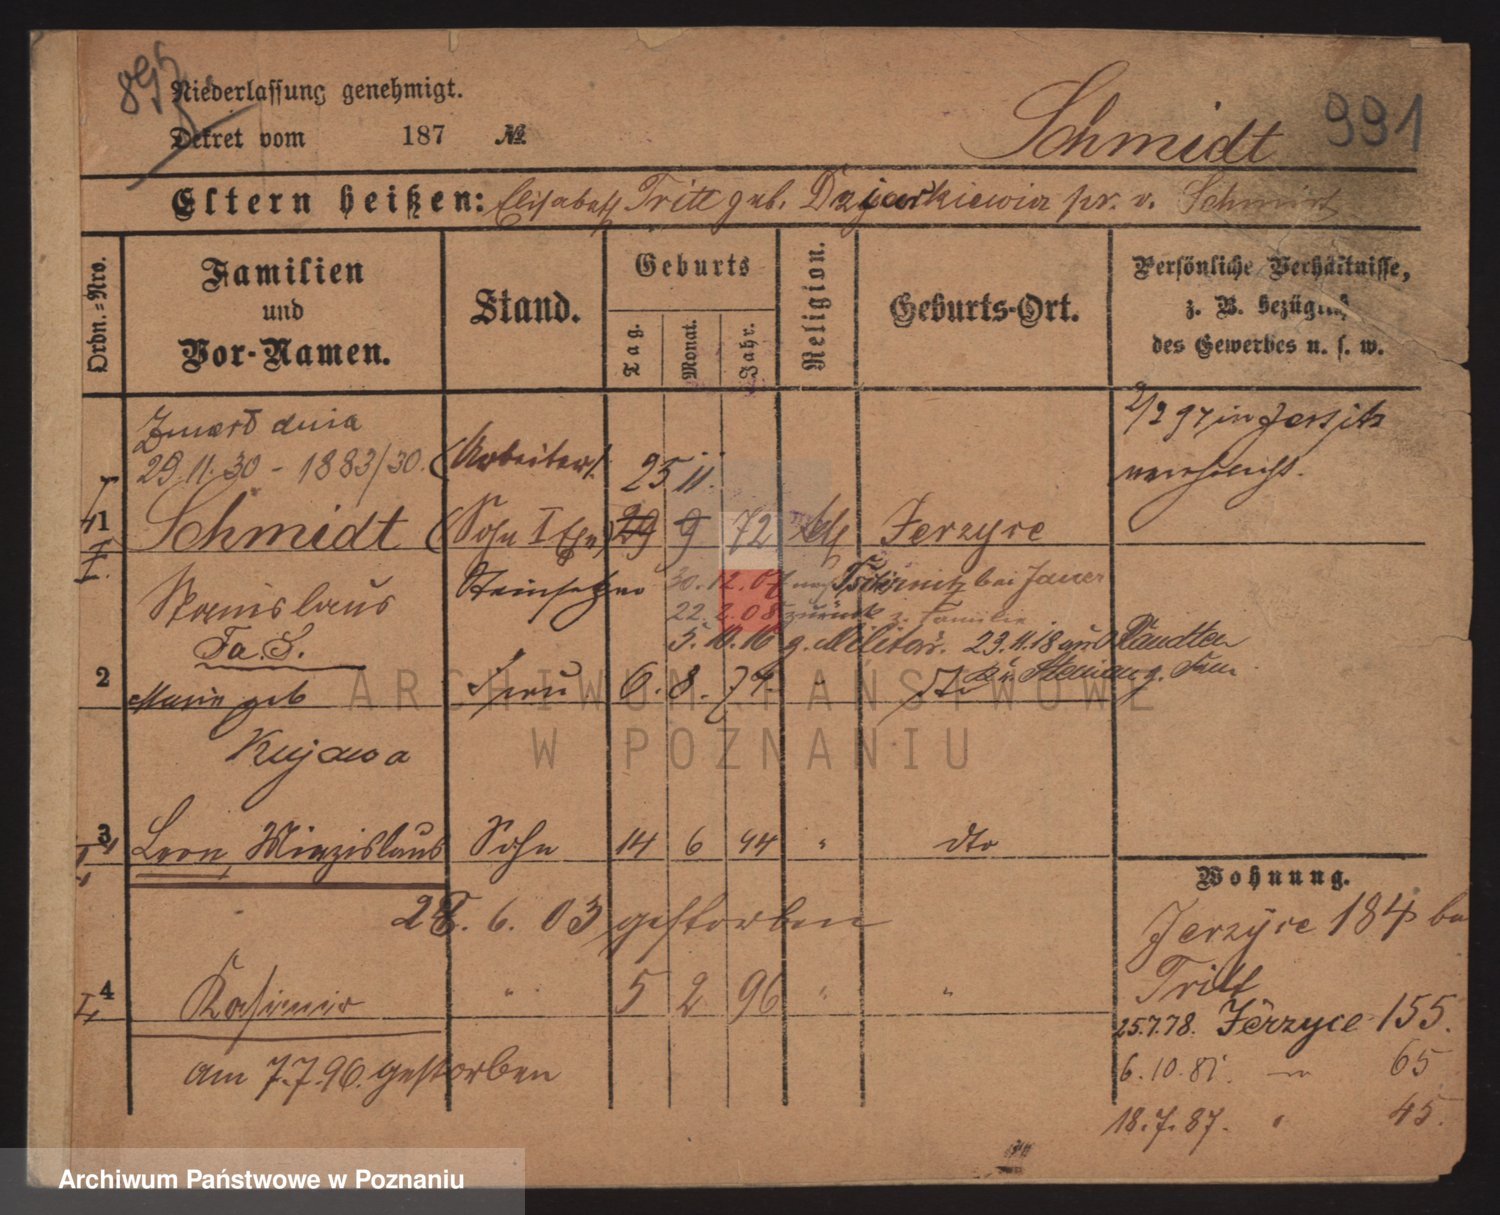 895
Niederlassung genehmigt.
Dekret vom 187 №
Schmidt 991
Eltern heißen: Elisabeth Tritt geb. Dzjarkiewicz pr. v. Schmidt
Ordn.=Nro.
Familien und Vor-Namen.
Stand.
Geburts
Tag. Monat. Jahr.
Religion.
Geburts-Ort.
Persönliche Verhältnisse, z. B. bezüglich des Gewerbes u. s. w.
Zmarł dnia
29.11.30 - 1883/30.
(Arbeiter)
25 11.
2/2 97 in Jersitz
verehelicht.
1 Schmidt (Sohn I Ehe) 29 9 72 kth Jerzyce
Stanislaus
Steinsetzer
30.12.07 nach bei Jauer
22.2.08 zurück z. Familie
Fa. S.
5.10.16 z. Militär. 23.11.18 aus
2 Marie geb Frau 6. 8. 74. " dto
Kujawa
3 Leon Miezislaus Sohn 14 6 94 " dto
28. 6. 03 gestorben
4 Kasimir " 5 2 96 " "
am 7.7.96. gestorben
Wohnung.
Jerzyce 184 bei
Tritt
25.7.78. Jerzyce 155.
6.10.81. " 65
18.7.87. " 45.
ARCHIWUM PAŃSTWOWE
W POZNANIU
Archiwum Państwowe w Poznaniu